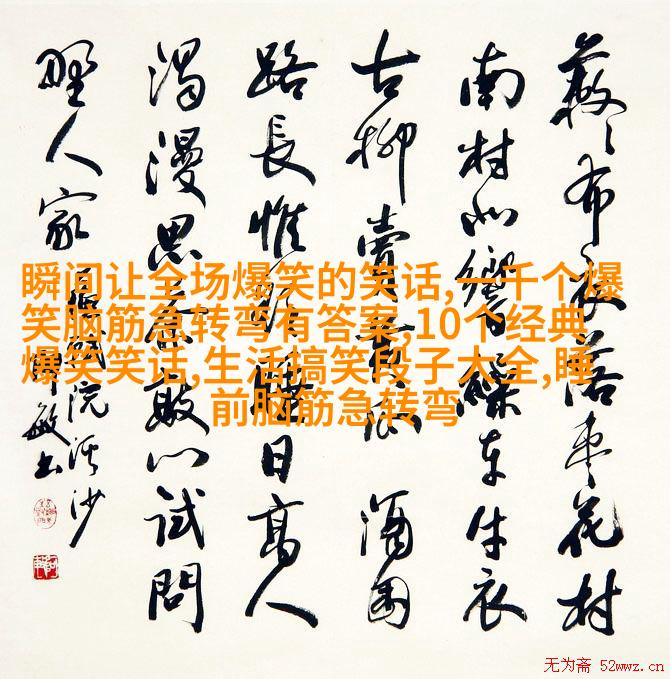 瞬间让全场爆笑的笑话,一千个爆
笑脑筋急转弯有答案,10个经典
爆笑笑话,生活搞笑段子大全,睡
前脑筋急转弯
蔌〻布衣落枣花村
南村北響繰車牛衣
古柳賣黄瓜 酒困
路長惟欲睡日高人
渴漫思茶敲门試問
野人家 浣溪沙
敏书
无为斋 52wwz.cn